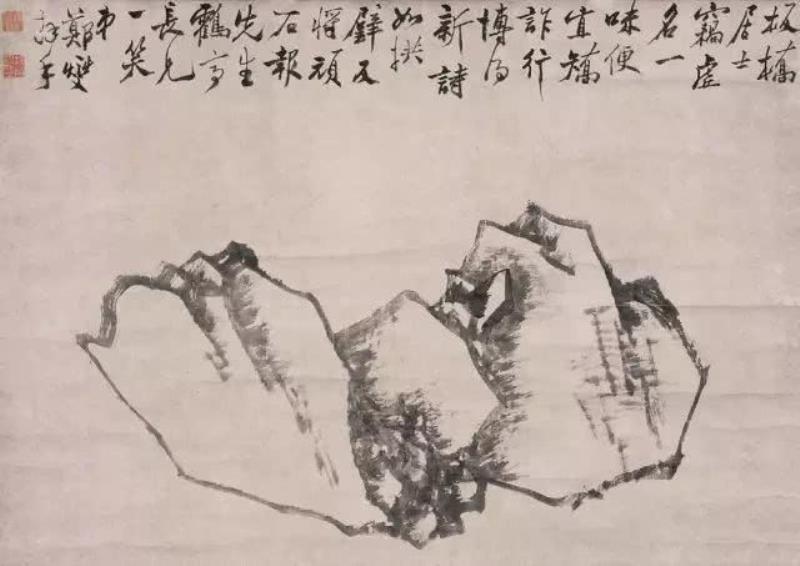 板橋
居士
竊虛
名一
味便
宜矯
詐行
博得
新詩
如拱
璧又
將頑
石報
先生
亭
長兄
一笑
弟
鄭燮